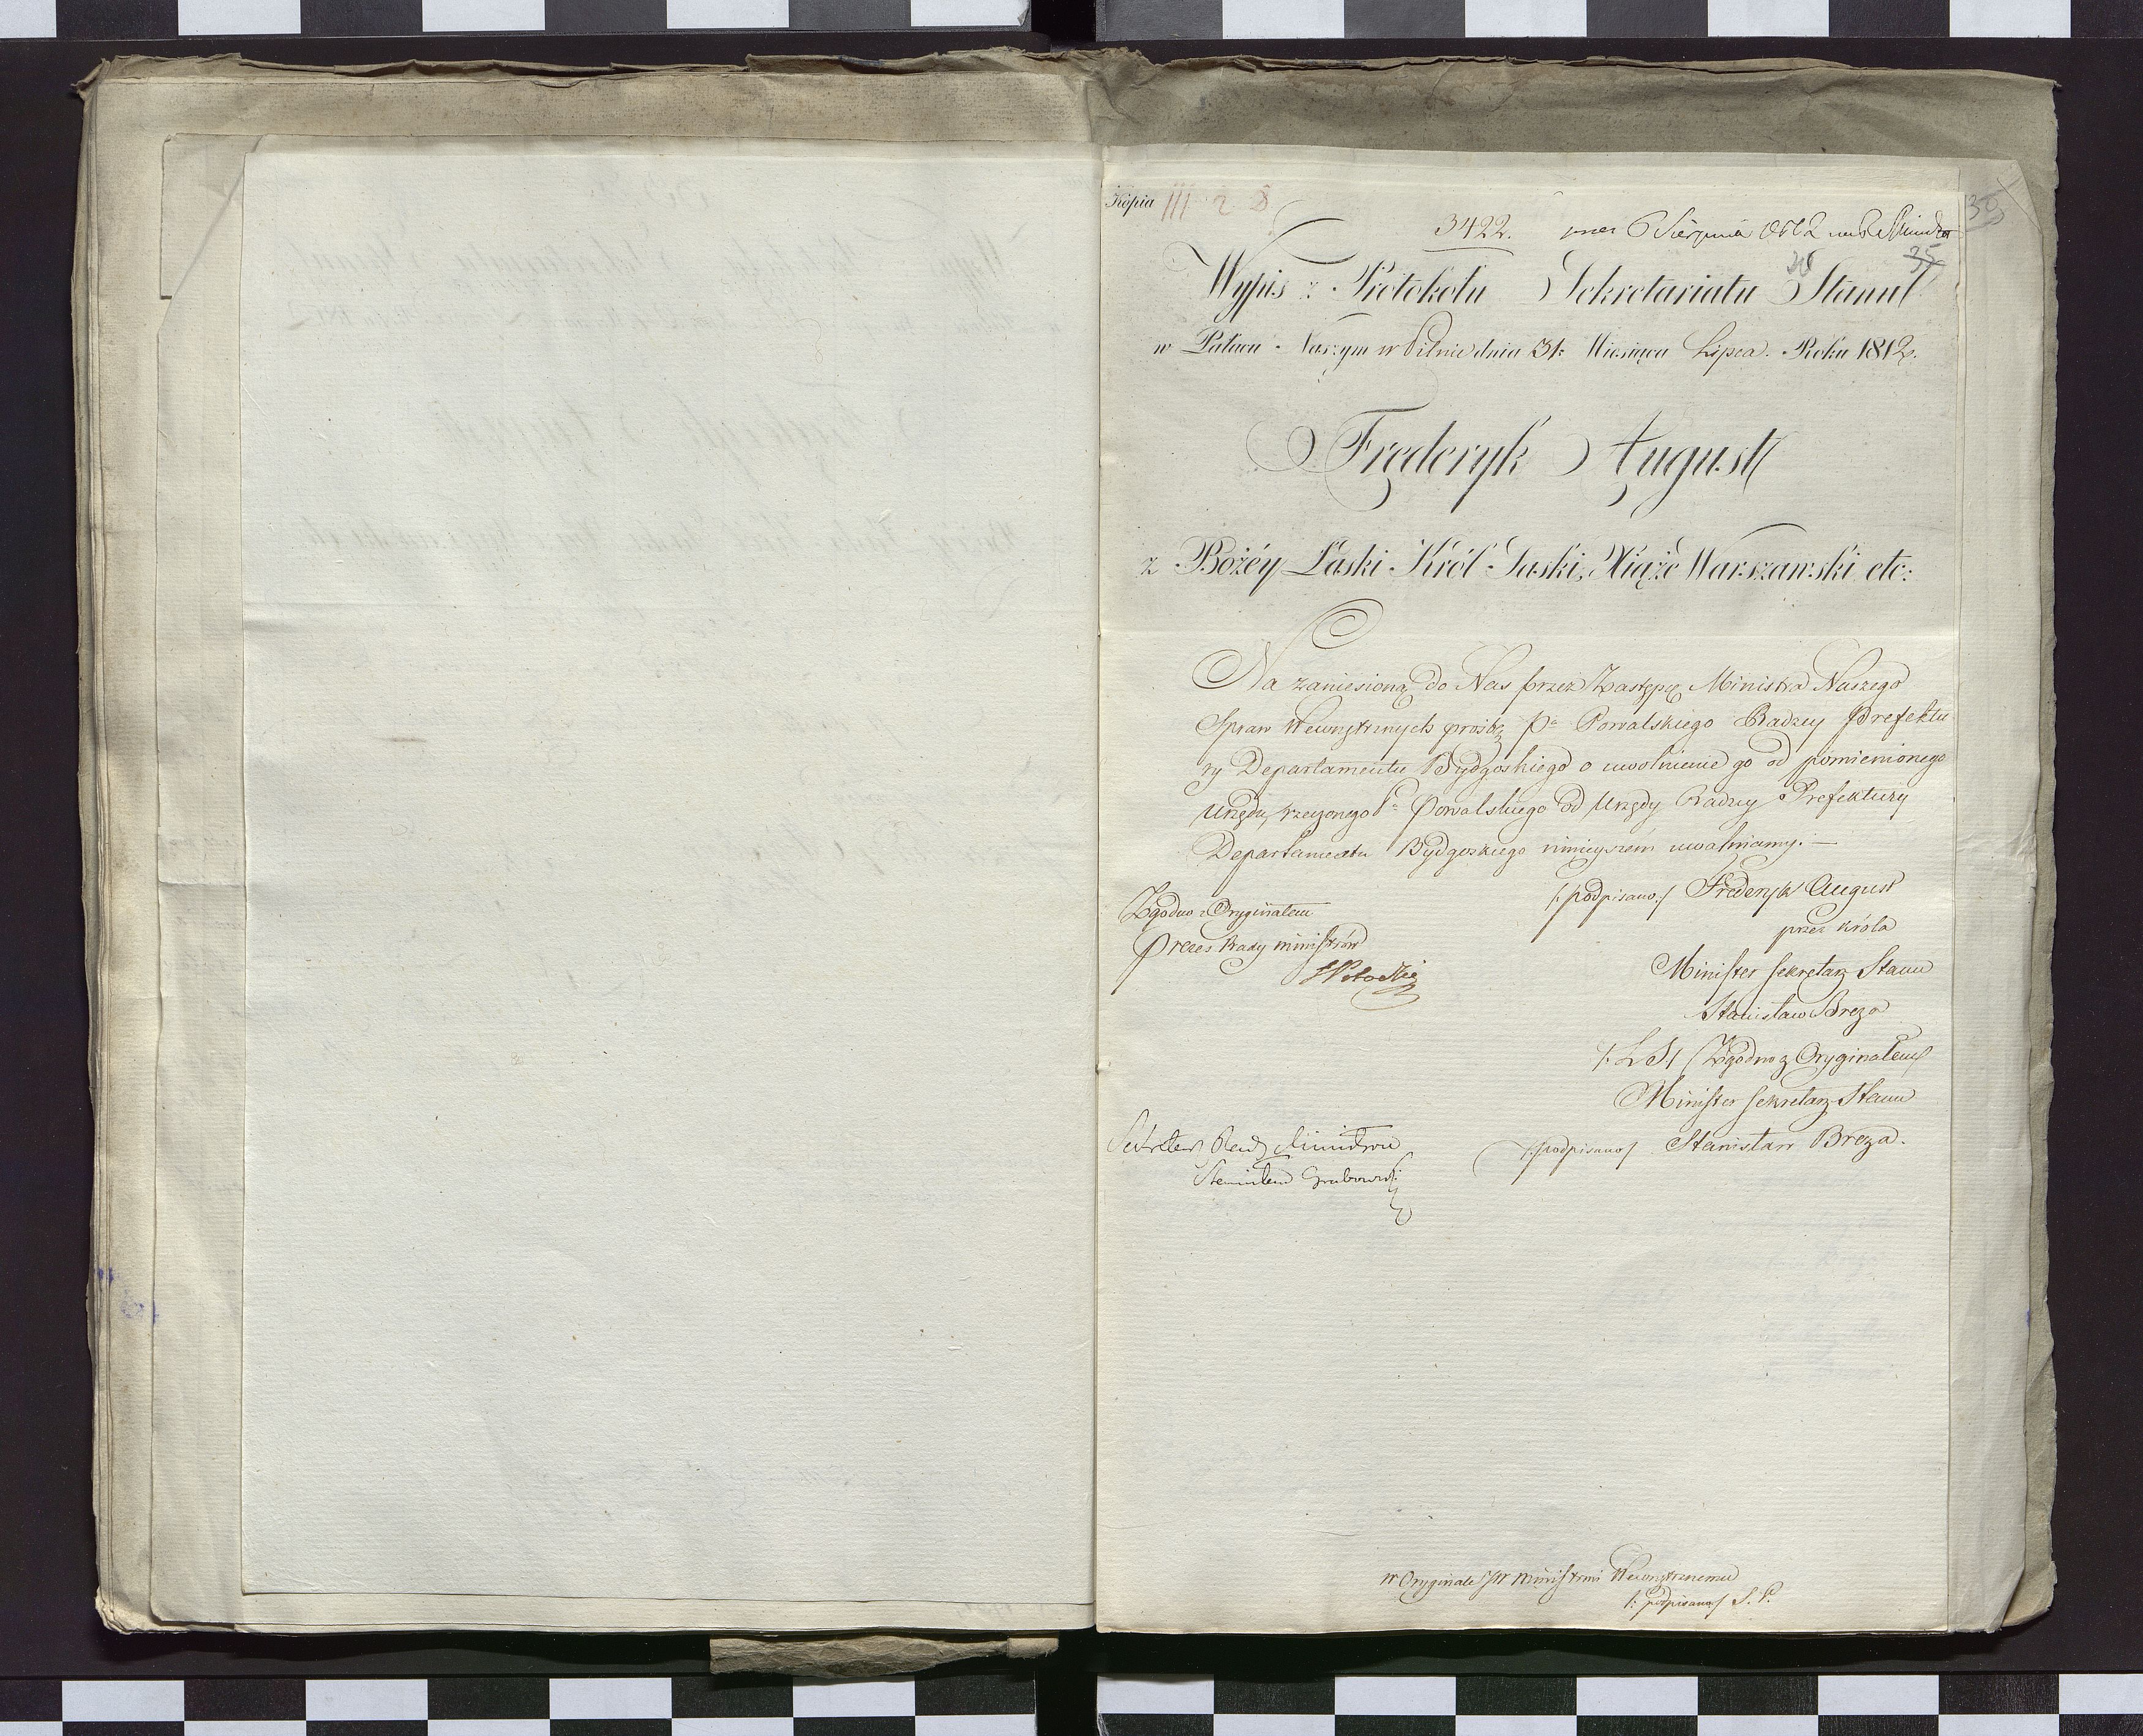 Kopia III 2 8
3422. pnes 6 Sierpnia 1812
35
35
Wypis z Protokołu Sekretariatu Stanu
w Pałacu Naszym w Pilnie dnia 31: Miesiąca Lipca. Roku 1812.
Fryderyk August
z Bożéy Łaski Król Saski, Xiążę Warszawski etc:
Na zaniesioną do Nas przez Zastępcę Ministra Naszego
Spraw Wewnętrznych prośbę Pa Powalskiego Radzcy Prefektu
ry Departamentu Bydgoskiego o uwolnienie go od pomienionego
Urzędu, rzeczonego Pa Powalskiego od Urzędu Radzcy Prefektury
Departamentu Bydgoskiego ninieyszém uwalniamy. —
Zgodno z Oryginałem
Prezes Rady ministrów
/:podpisano:/ Frederyk August
przez króla
Minister Sekretarz Stanu
Stanisław Breza
/: L S:/ Zgodno z Oryginałem
Minister Sekretarz Stanu
/:podpisano/ Stanisław Breza.
Sekretarz Rady Ministrów
Stanisław Grabowski
w Oryginale JW Ministrowi Wewnętrznemu
/: podpisano:/ S. P.